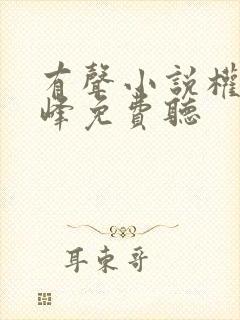 有聲小說權
峰免費聽
耳東哥